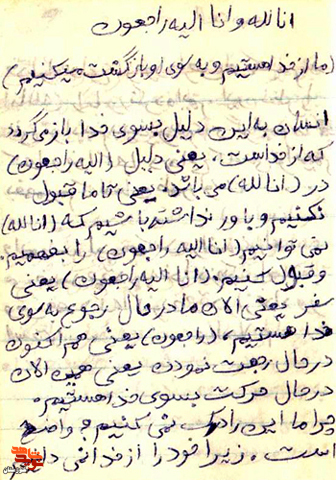 انا لله و انا الیه راجعون
(ما از خدا هستیم و به سوی او بازگشت میکنیم)
انسان به این دلیل بسوی خدا باز میگردد
که از خداست، یعنی دلیل (الیه راجعون)
در (انا لله) می باشد، یعنی تا ما قبول
نکنیم و باور نداشته باشیم که (انا لله)
نمی توانیم (انا الیه راجعون) را بفهمیم
و قبول کنیم، (انا الیه راجعون) یعنی
سفر یعنی الان ما در حال رجوع به سوی
خدا هستیم، (راجعون) یعنی هم اکنون
در حال رجعت نمودن یعنی همین الان
در حال حرکت بسوی خدا هستیم.
چرا ما این را درک نمی کنیم؟ واضح
است. زیرا خود را از خدا نمی دانیم